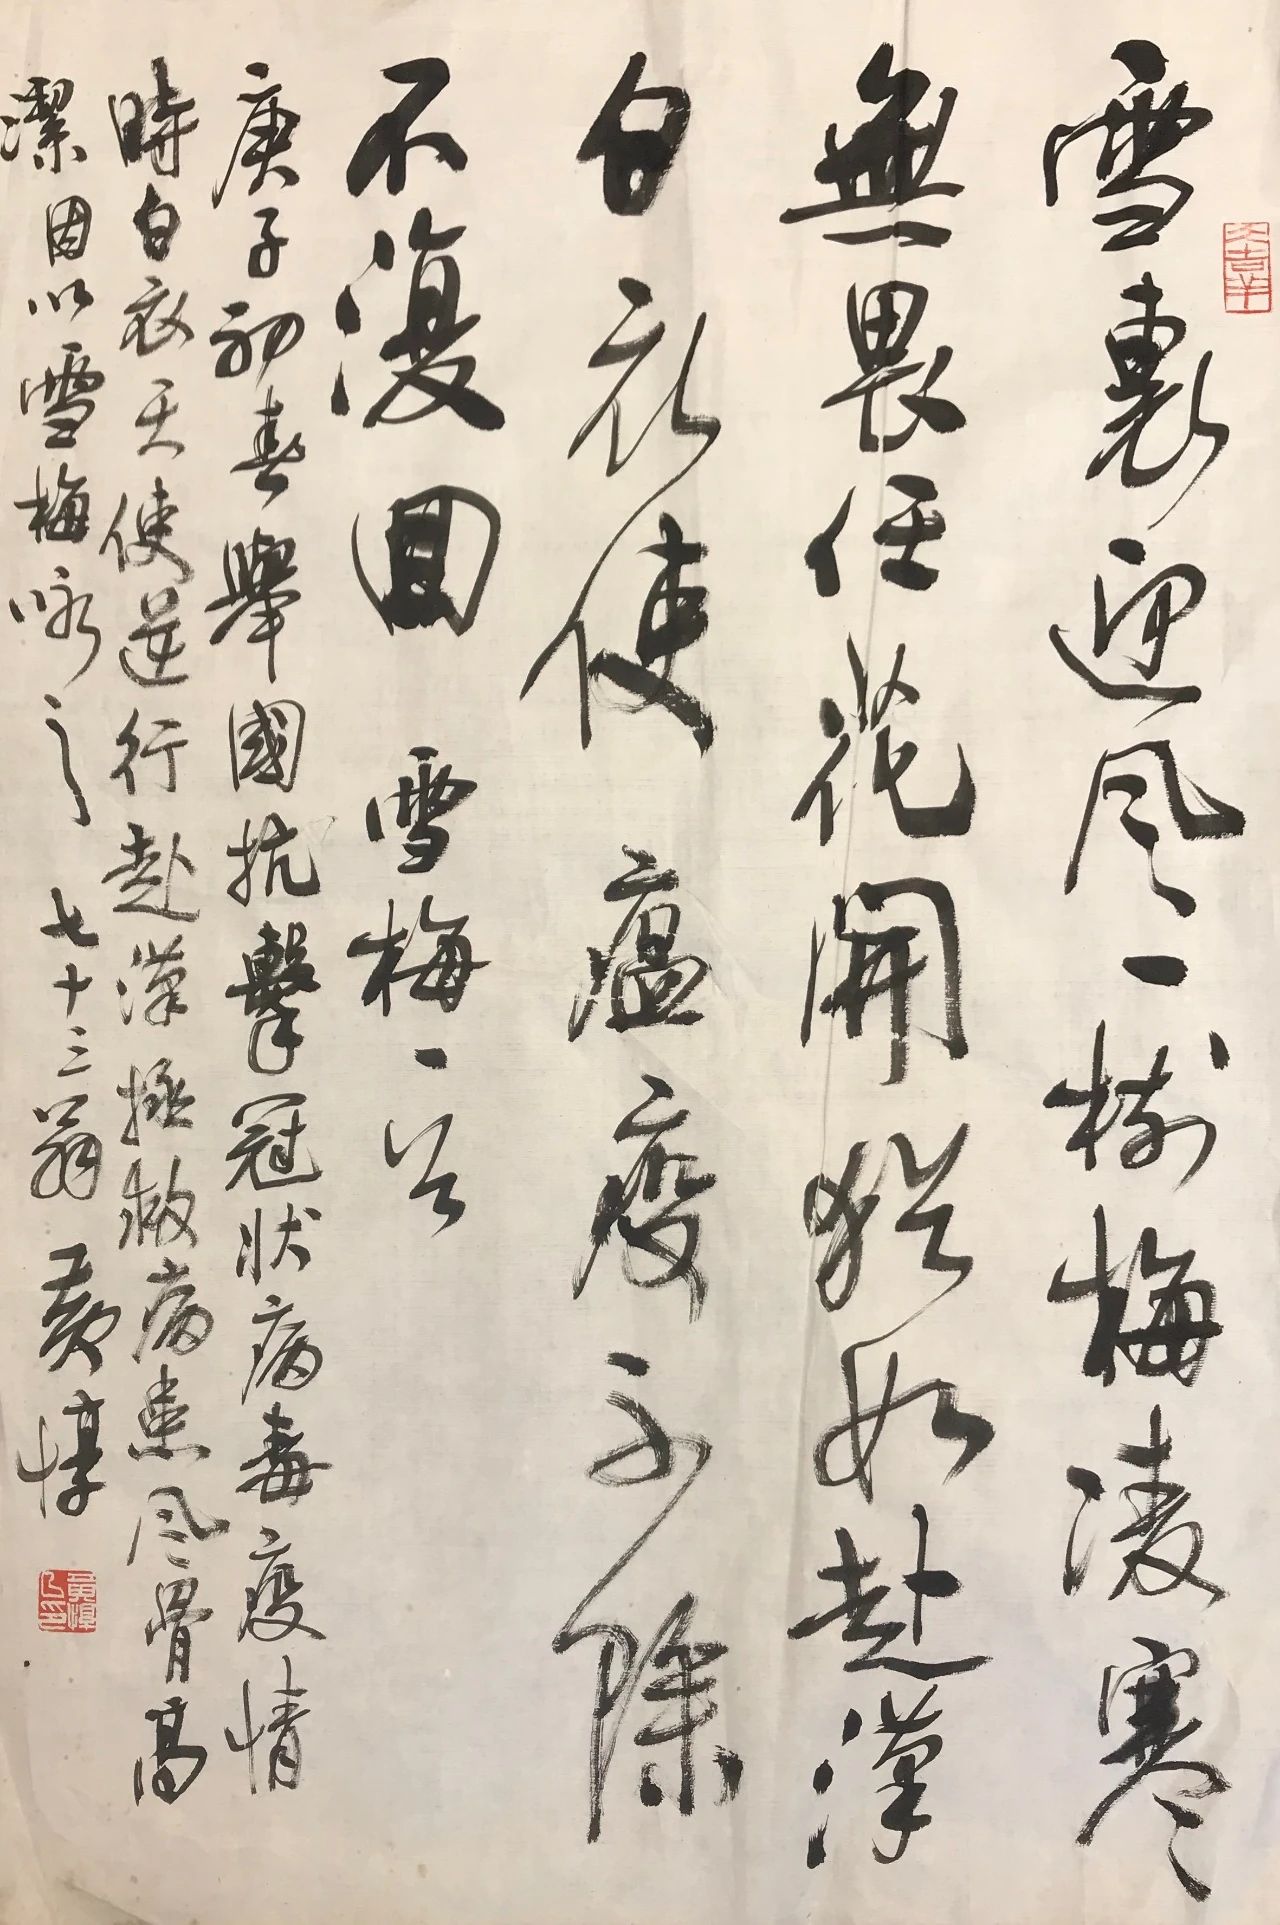 雪裏迎风一樹梅凌寒
無畏任花開猶如赴漢
白衣使瘟疫不除
不復回 雪梅一首
庚子初春舉國抗擊冠状病毒疫情
時白衣天使逆行赴漢拯救病患风骨高
潔因以雪梅咏之 七十三翁 黄惇
大吉羊
黄惇之印